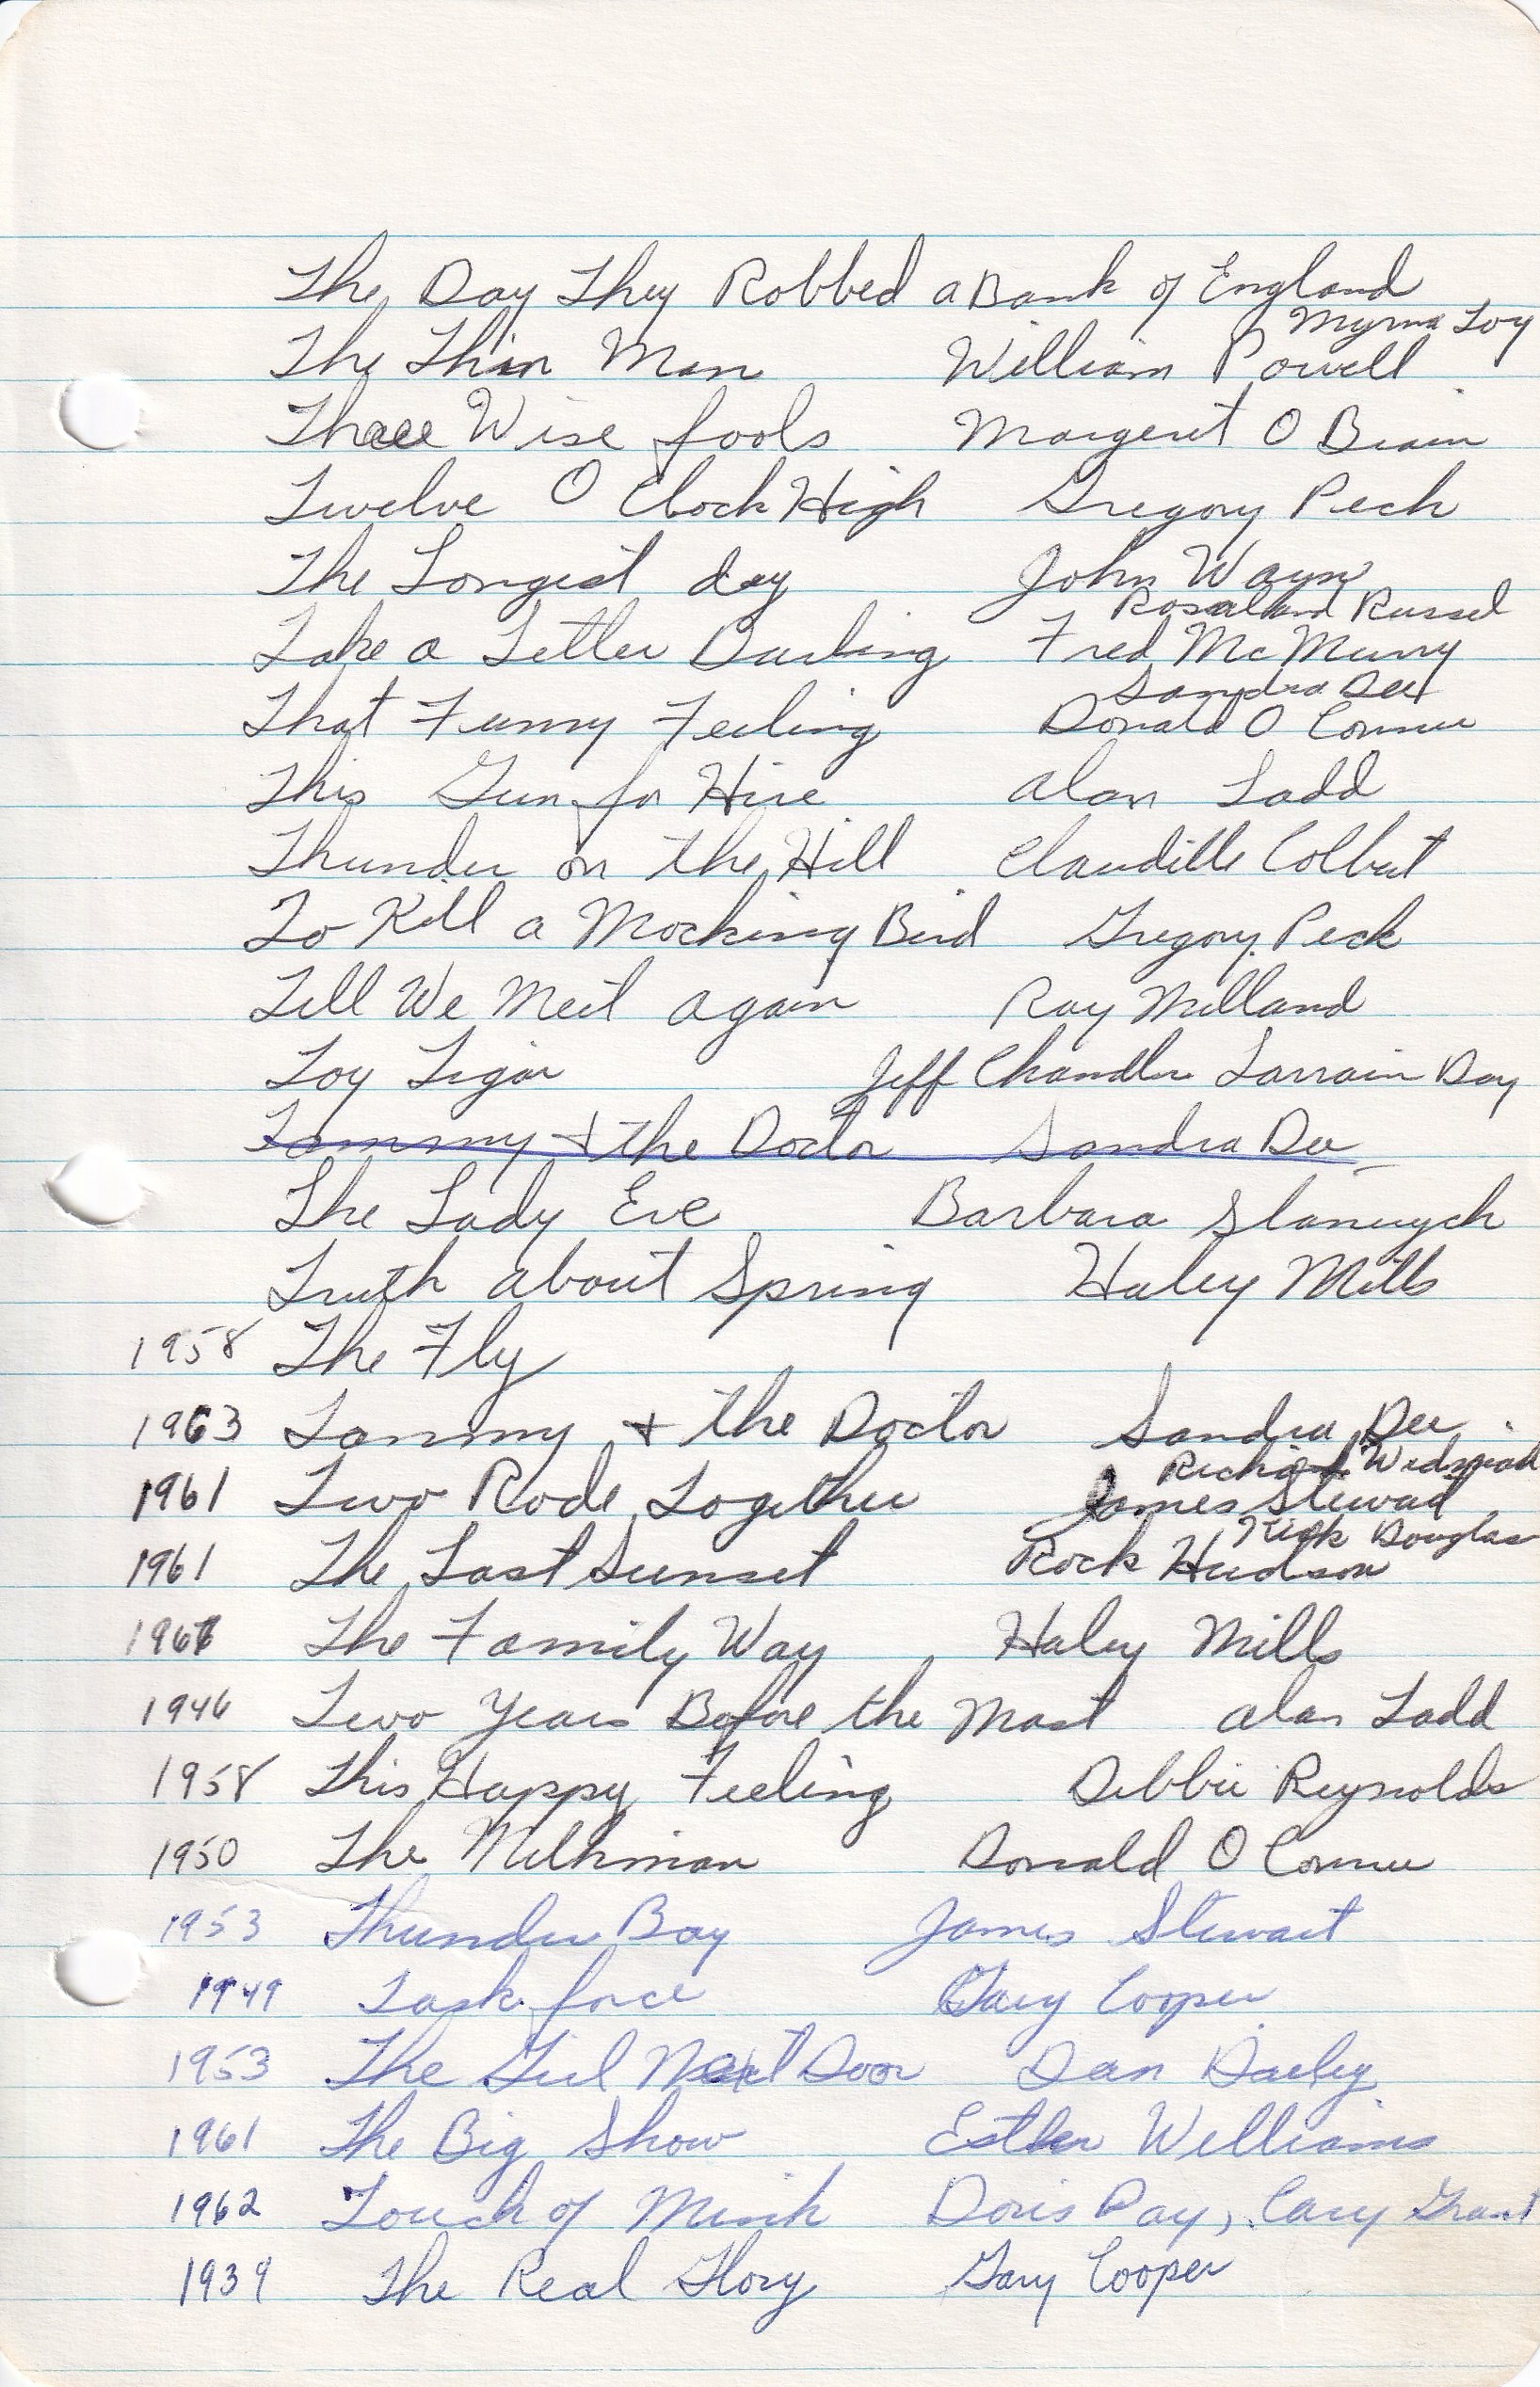 The Day They Robbed a Bank of England
Myrna Loy
The Thin Man William Powell
Three Wise fools Margeret O Brain
Twelve O Clock High Gregory Peck
The Longest day John Wayne
Rosaland Russel
Take a Letter Darling Fred McMurry
Sandra Dee
That Funny Feeling Donald O Conner
This Gun for Hire Alan Ladd
Thunder on the Hill Claudille Colbert
To Kill a Mocking Bird Gregory Peck
Till We Meet Again Ray Milland
Toy Tiger Jeff Chandler Larrain Day
Tammy & the Doctor Sandra Dee
The Lady Eve Barbara Stanwych
Truth about Spring Haley Mills
1958 The Fly
1963 Tammy & the Doctor Sandra Dee
Richard Widmiad
1961 Two Rode Together James Stewart
Kirk Douglas
1961 The Last Sunset Rock Hudson
The Family Way Haley Mills
1946 Two Years Before the Mast Alan Ladd
1958 This Happy Feeling Debbie Reynolds
1950 The Milkman Donald O Conner
1953 Thunder Bay James Stewart
1949 Task force Gary Cooper
1953 The Girl Next Door Dan Dailey
1961 The Big Show Esther Williams
1962 Touch of Mink Doris Day, Cary Grant
1939 The Real Glory Gary Cooper